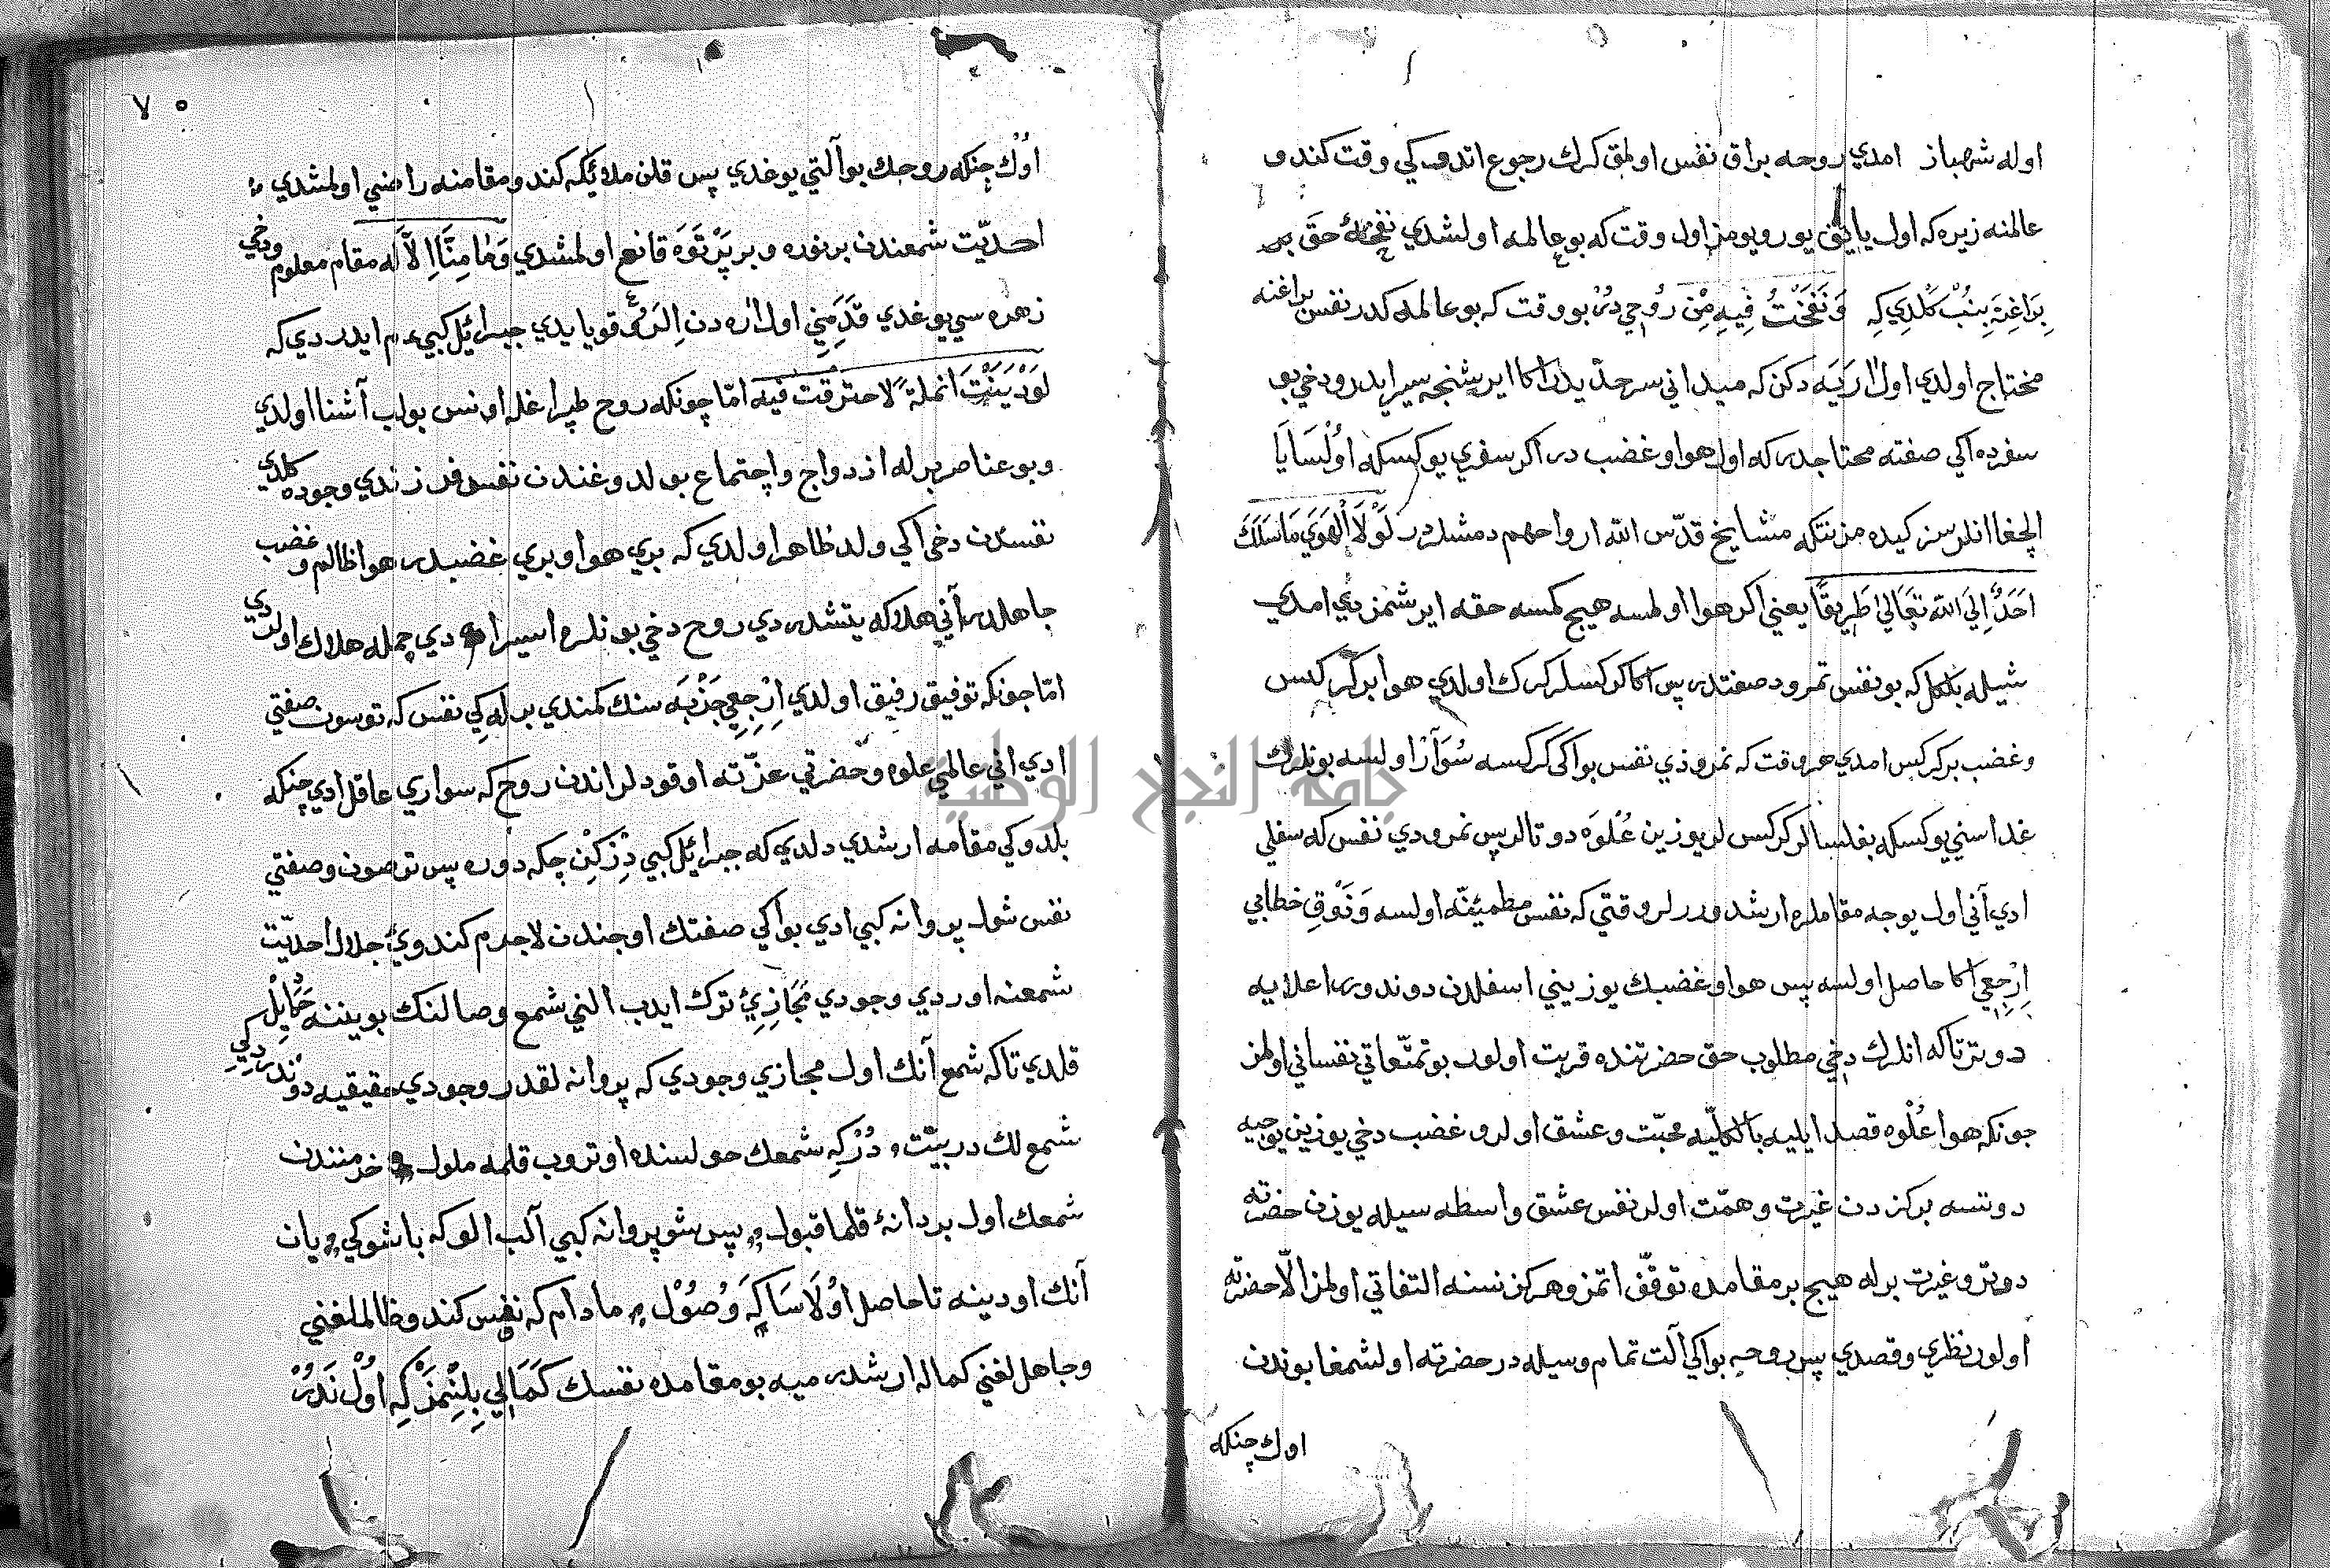 اوله شهباز امدي روحه براق نفس اولمق كرك رجوع اتدوكي وقت كندو
عالمنه زيره كه اول يايق يورويومز اول وقت كه بو عالمه اولشدي نفخهٔ حق بر
براغنه بنب كلدي كه ونفخت فيه من روحي در بو وقت كه بو عالمه كدر نفس براغنه
محتاج اولدي اول اراريه دكن كه ميداني سرحديدر اكا ايرشنجه سير ايدر ودخي بو
سفرده اكي صفته محتاجدر كه اول هوا وغضب در اكر سفري يوكسكه اولسا يا
الچغا انلرسز كيده مز نتكه مشايخ قدّس الله ارواحهم دمشلردر لولا الهوي ما سلك
احد الي الله تعالي طريقا يعني اكر هوا اولمسه هيچ كمسه حقه ايرشمزدي امدي
شيله بلكل كه بو نفس نمرود صفتدر پس اكا كركسلر كرك اولدي هوا بر كركس
وغضب بر كركس امدي هر وقت كه نمروذي نفس بو اكي كركسه سوار اولسه بونلرك
غداسني يوكسكه بغلسالر كركس لر يوزين علوه دوتالر پس نمرودي نفس كه سفلي
ادي آني اول يوجه مقاملره ارشدورلر وقتي كه نفس مطمئنّه اولسه وذوق خطابي
ارجعي اكا حاصل اولسه پس هوا وغضبك يوزيني اسفلدن دوندور اعلايه
دوتر تاكه انلرك دخي مطلوب حق حضرتنده قربت اولور بو تمتّعاتي نفساني اولمز
جونكه هوا علوه قصد ايليه بالكليّه محبّت وعشق اولر وغضب دخي يوزين يوجيه
دوتسه بركزدن غيرت وهمّت اولر نفس عشق واسطه سيله يوزن حضرته
دوتر وغيرت برله هيچ بر مقامده توقّف اتمز وهركز نسنه التفاتي اولمز الّا حضرته
اولور نظري وقصدي پس روحه بو اكي آلت تمام وسيله در حضرته اولشمغا بوندن
اوك چنكه
٧٥
اوك چنكه روحك بو آلتي يوغدي پس قلن ملائكه كندو مقامنه راضي اولمشدي
احديّت شمعندن بر نوره وبر پرتوه قانع اولمشدي وما منا الّا له مقام معلوم ودخي
زهره سي يوغدي قدمني اول اره دن الرو قويايدي جبرائيل كبيم ايدردي كه
لو دنيت انملة لاحترقت فيه امّا چونكه روح طپراغله اونس بولب آشنا اولدي
وبو عناصر برله ازدواج واجتماع بولدوغندن نفس فرزندي وجوده كلدي
نفسدن دخي اكي ولد ظاهر اولدي كه بري هوا وبري غضبدر هوا ظالم وغضب
جاهلدر آني هلاكه يتشدردي روح دخي بونلره اسير امدي جمله هلاك اولدي
امّا جونكه توفيق رفيق اولدي ارجعي جذبه سنك كمندي برله كي نفس كه توسون صفتي
ادي اني عالمي علوه وحضرتي عزّته اوقودلر اندن روح كه سواري عاقل ادي چنكه
بلدوكي مقامه ارشدي دلدي كه جبرائيل كبي دزكين چكه دوره پس توصون وصفتي
نفس شول پروانه كبي ادي بو اكي صفتك اوجندن لاجرم كندوي جلال احديّت
شمعنه اوردي وجودي مجازي ترك ايدب الني شمع وصالنك بويننه حمايل
قلدي تاكه شمع آنك اول مجازي وجودي كه پروانه لقدر وجودي حقيقيه دوندردي كي
شمع لك در بيّت دزكه شمعك حولسنده اوتروب قلمه ملول خرمنندن
شمعك اول بر دانهٔ قلما قبول پس شو پروانه كبي آلب الوكه باشوكي يان
آنك اودينه تا حاصل اولا ساكه وصول مادام كه نفس كندو ظالملغني
وجاهللغني كماله ارشدرميه بو مقامده نفسك كمالي بلنمز كه اول ندر